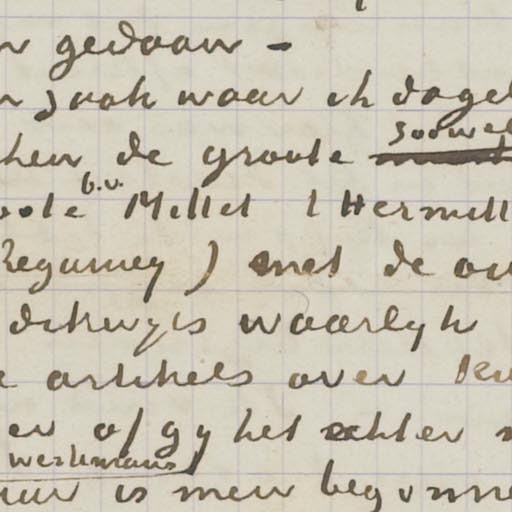 gedaan –
zaak waar ik dage
zoowel
de groote
b.v.
Millet l Hermitt
Regamey) met de ou
dikwijls waarlyk
artikels over
en of gy het echter
werkmans
is men begonne